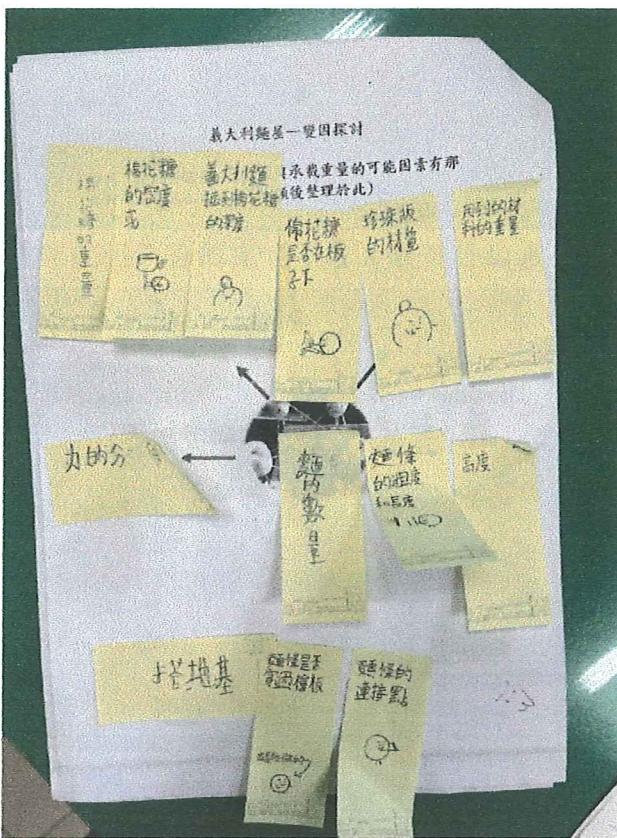 義大利麵屋—變因探討
承載重量的可能因素有那
後整理於此）
棉花糖
的密度
義大利麵
插到棉花糖
的深度
棉花糖
是否在板
子下
珍珠板
的材質
用到的材
料的重量
力的分
麵的數量
麵條
的粗度
和長度
高度
塔地基
麵條是否
貫過檔板
麵條的
連接點